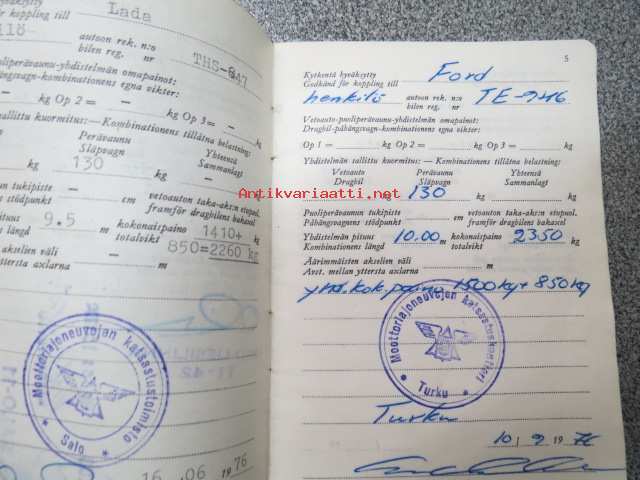 äksytty Lada
för koppling till
118 autoon rek. n:o THS-847
bilen reg. nr
Puoliperävaunu-yhdistelmän omapainot:
påhängsvagn-kombinationens egna vikter:
kg Op 2 = — kg Op 3 = — kg
tallittu kuormitus: — Kombinationens tillåtna belastning:
Perävaunu Yhteensä
Släpvagn Sammanlagt
kg 130 kg kg
tukipiste — cm vetoauton taka-aks:n etupuol.
stödpunkt framför dragbilens bakaxel
pituus 9.5 m kokonaispaino 1410+ kg
längd totalvikt 850=2260 kg
akselien väli — m
yttersta axlarna
Moottoriajoneuvojen katsastustoimisto
Salo
16 .06 1976
5
Kytkentä hyväksytty Ford
Godkänd för koppling till
henkilö autoon rek. n:o TE-946
bilen reg. nr
Vetoauto-puoliperävaunu-yhdistelmän omapainot:
Dragbil-påhängsvagn-kombinationens egna vikter:
Op 1 = kg Op 2 = kg Op 3 = kg
Yhdistelmän tallittu kuormitus: — Kombinationens tillåtna belastning:
Vetoauto Perävaunu Yhteensä
Dragbil Släpvagn Sammanlagt
kg 130 kg kg
Antikvariaatti.net
Puoliperävaunun tukipiste — cm vetoauton taka-aks:n etupuol.
Påhängsvagnens stödpunkt framför dragbilens bakaxel
Yhdistelmän pituus 10.00 m kokonaispaino 2350 kg
Kombinationens längd totalvikt
Äärimmäisten akselien väli — m
Avst. mellan yttersta axlarna
yhd. kok. paino 1500 kg + 850 kg
Moottoriajoneuvojen katsastuskonttori
Turku
Turku
10 / 9 1976